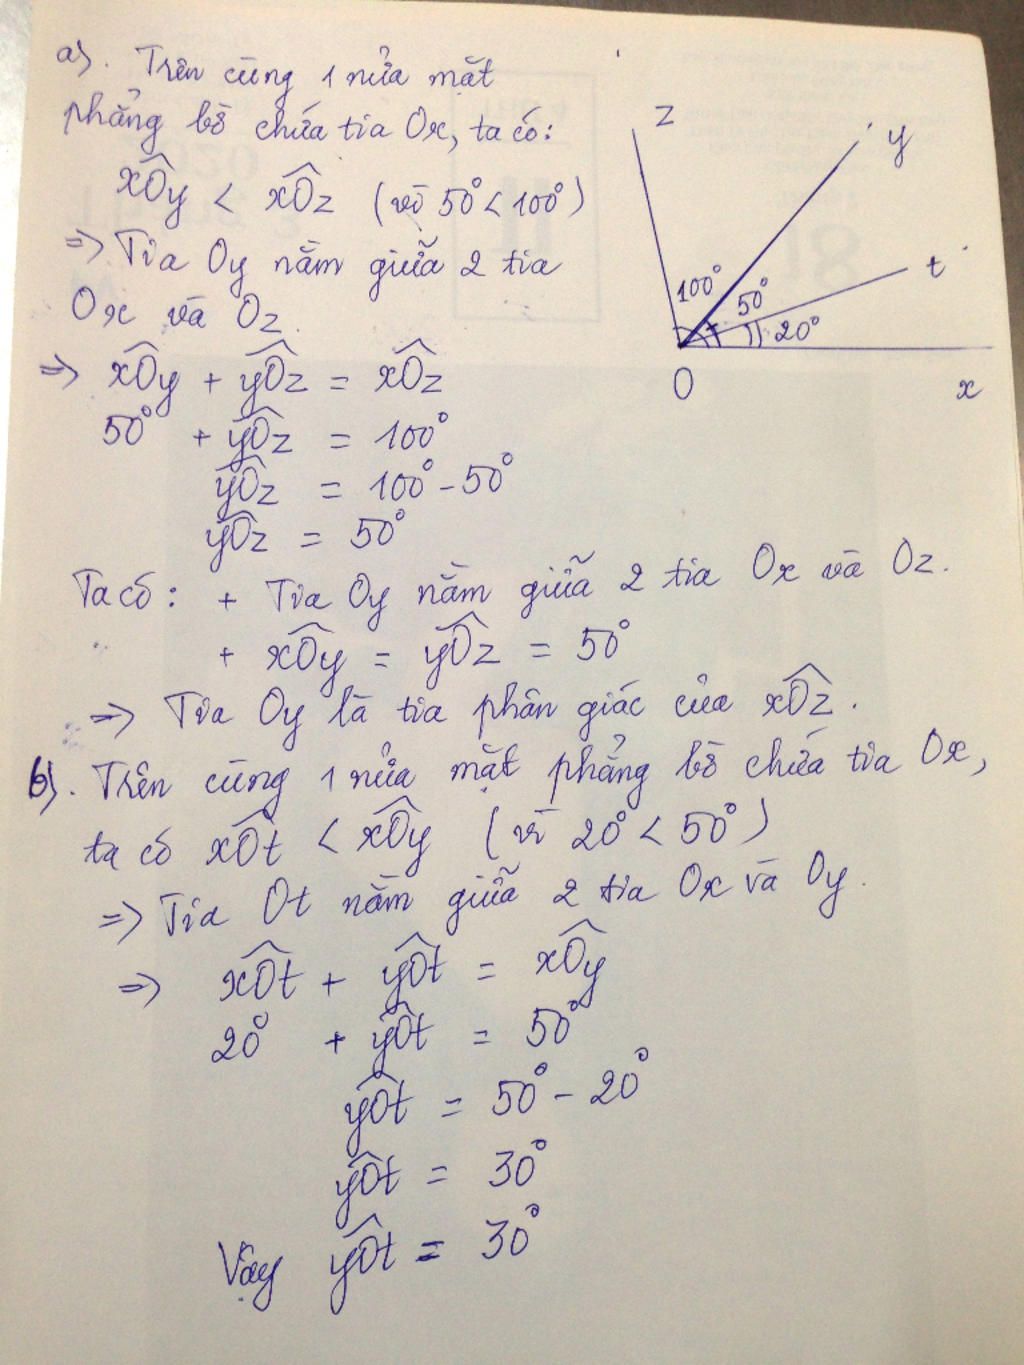 a). Trên cùng 1 nửa mặt
phẳng bờ chứa tia Ox, ta có:
xÔy < xÔz (vì 50° < 100°)
=> Tia Oy nằm giữa 2 tia
Ox và Oz.
=> xÔy + yÔz = xÔz
50° + yÔz = 100°
yÔz = 100° - 50°
yÔz = 50°
Ta có: + Tia Oy nằm giữa 2 tia Ox và Oz.
+ xÔy = yÔz = 50°
=> Tia Oy là tia phân giác của xÔz.
b). Trên cùng 1 nửa mặt phẳng bờ chứa tia Ox,
ta có xÔt < xÔy (vì 20° < 50°)
=> Tia Ot nằm giữa 2 tia Ox và Oy.
=> xÔt + yÔt = xÔy
20° + yÔt = 50°
yÔt = 50° - 20°
yÔt = 30°
Vậy yÔt = 30°
z
y
t
100°
50°
20°
O
x